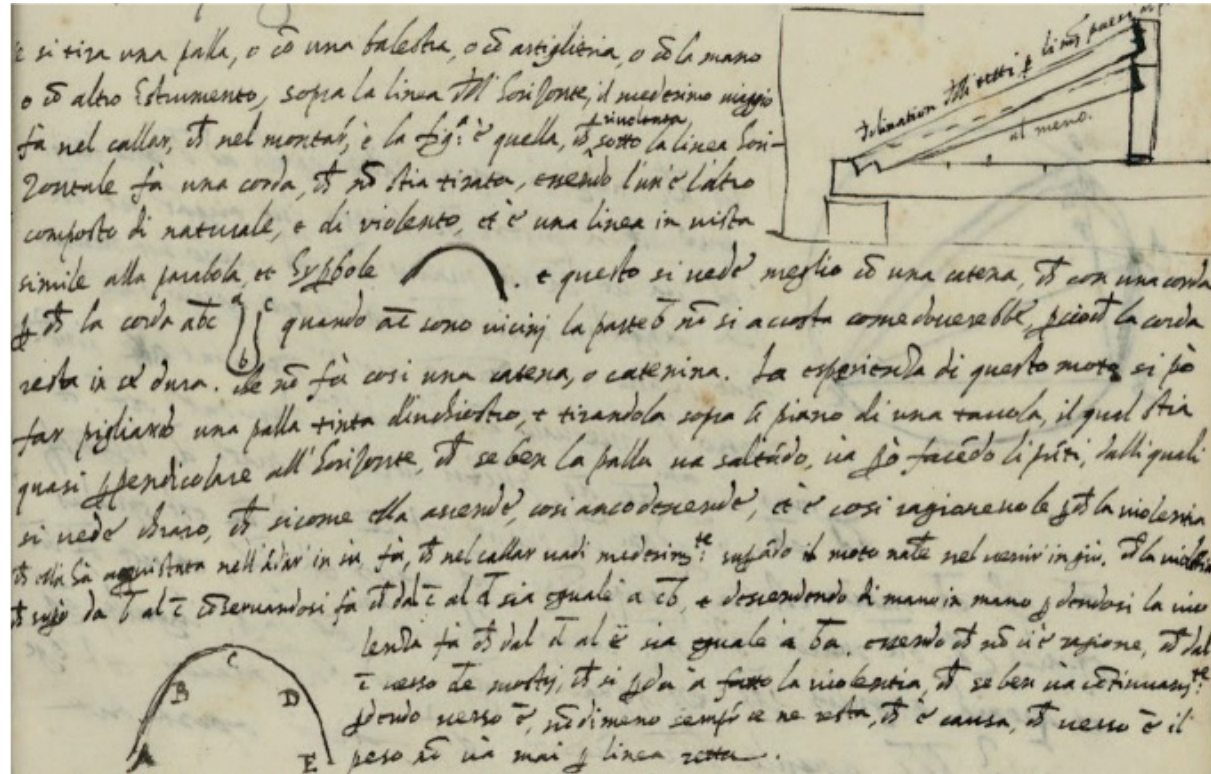 si tira una palla, o cō una balestra, o cō artiglieria, o cō la mano
o cō altro Istrumento, sopra la linea dell' horizonte, il medesimo viaggio
fà nel callar, ch̄ nel montar, e la fig.ᵃ è quella, ch̄ rivoltata sotto la linea hori-
zontale fà una corda, ch̄ nō stia tirata, essendo l'un e l'altro
composto di naturale, e di violento, et è una linea in vista
simile alla parabola, et hyperbole . e questo si vede meglio cō una catena, ch̄ con una corda
p̱ ch̄ la corda abc quando ac sono vicini la parte b nō si accosta come doverebbe, la corda
resta in sè dura. che nō fà cosi una catena, o catenina. La esperienza di questo moto si pò
far pigliando una palla tinta d'inchiostro, e tirandola sopra piano di una tavola, il qual stia
quasi p̱pendicolare all'horizonte, ch̄ se ben la palla va saltādo, và p̱ò facēdo li pūti, dalli quali
si vede chiaro, ch̄ sicome ella ascende, cosi anco descende, et è cosi ragionevole p̱ch̄ la violentia
ch̄ ella hà acquistata nell'ādar in sù fà, ch̄ nel callar vadi medesim.te supādo il moto nāle nel venir in giù, ch̄ la violētia
ch̄ supò da b al c cōservandosi fà ch̄ dal c al d sia eguale à cb, e descendendo di mano in mano p̱dendosi la vio
lenza fà ch̄ dal d al e sia eguale à ba, essendo ch̄ nō ci è ragione, ch̄ dal
c verso de mostri, ch̄ si p̱da a fatto la violentia, ch̄ se ben và cōtinuam.te
p̱dendo verso e, nōdimeno semp̄ ce ne resta, ch̄ è causa, ch̄ verso e il
peso nō và mai p̱ linea retta.
Inclination delli tetti p̱ li paesi
al meno.
a c
b
A B C D E